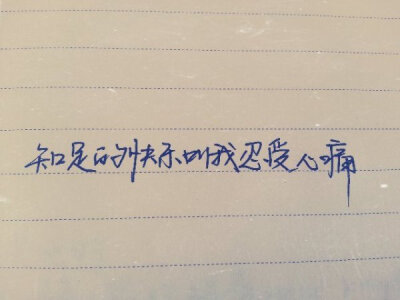 知足的快乐叫我忍受心痛